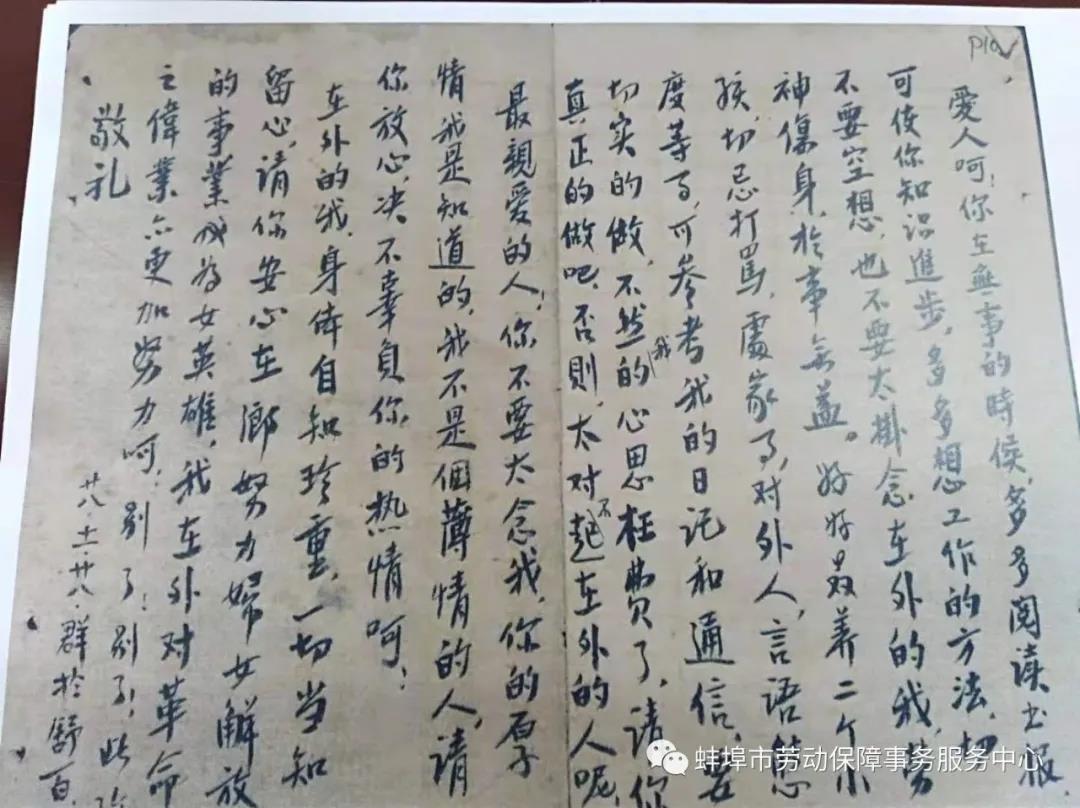 P10
愛人呵！你在無事的時候，多多阅读书报，
可使你知识進步，多多想工作的方法，切
不要空想，也不要太掛念在外的我，劳
神傷身，於事無益。好好教养二个小
孩，切忌打罵，處家了，对外人，言语態
度等了，可参考我的日记和通信，要
切实的做，不然我的心思枉费了，请你
真正的做吧，否則，太对不起在外的人呢，
最親爱的人！你不要太念我，你的厚
情我是知道的，我不是個薄情的人，请
你放心，决不辜負你的热情呵！
在外的我，身体自知珍重，一切当知
留心，请你安心在廊努力婦女解放
的事業成為女英雄，我在外对革命
之偉業亦更加努力呵，别了！别了，此致
敬礼
廿八·十一·廿八·群於舒百
蚌埠市劳动保障事务服务中心